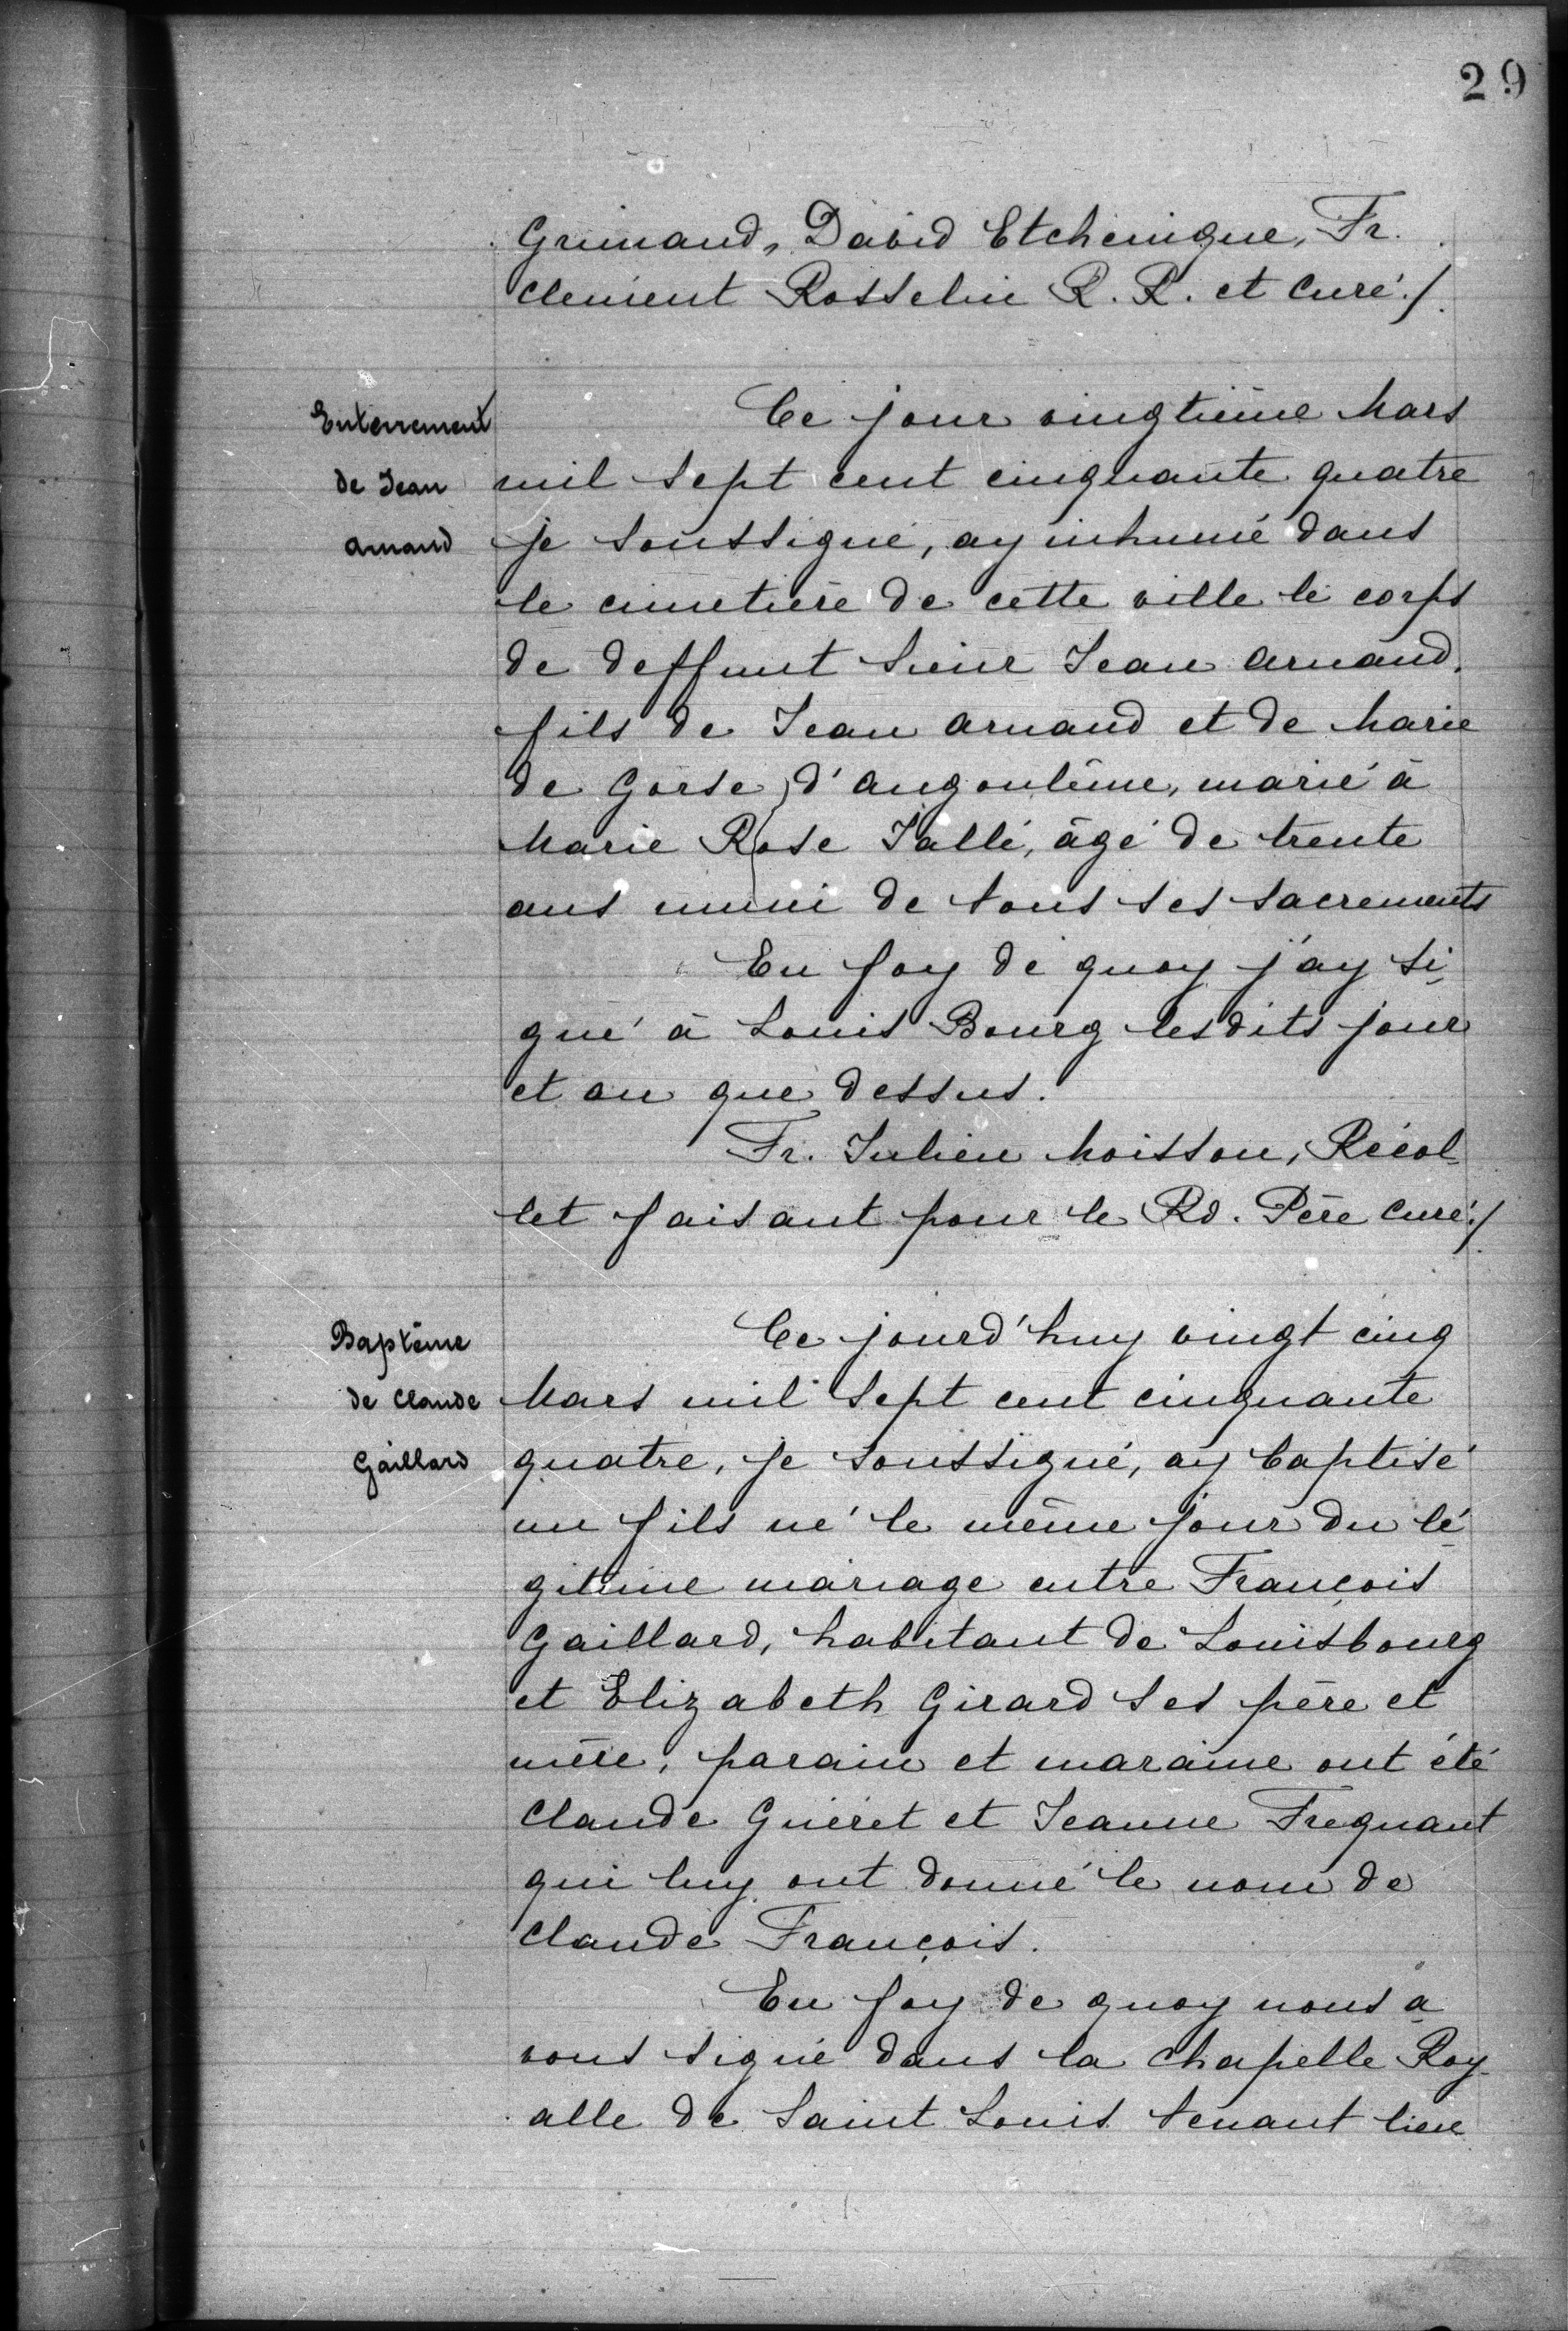 29
Grimaud, David Etchenique, Fr.
Clement Rosselin R. R. et Curé./.
Enterrement
de Jean
arnaud
Ce jour vingtième Mars
mil sept cent cinquante quatre
je soussigné, ay inhumé dans
le cimetière de cette ville le corps
de deffunt Sieur Jean arnaud.
fils de Jean arnaud et de Marie
de Gorse d'angoulême, marié à
Marie Rose Jallé, âgé de trente
ans muni de tous ses sacrements
En foy de quoy j'ay si-
gné à Louis Bourg lesdits jour
et an que dessus.
Fr. Julien Moisson, Récol-
let faisant pour le Rd. Père Curé./.
Baptême
de Claude
Gaillard
Ce jourd'huy vingt cinq
Mars mil sept cent cinquante
quatre, je soussigné, ay baptisé
un fils né le même jour du lé-
gitime mariage entre François
Gaillard, habitant de Louisbourg
et Elizabeth Girard ses père et
mère, parain et maraine ont été
Claude Guéret et Jeanne Frequant
qui luy ont donné le nom de
Claude François.
En foy de quoy nous a-
vons signé dans la chapelle Roy-
alle de Saint Louis tenant lieu